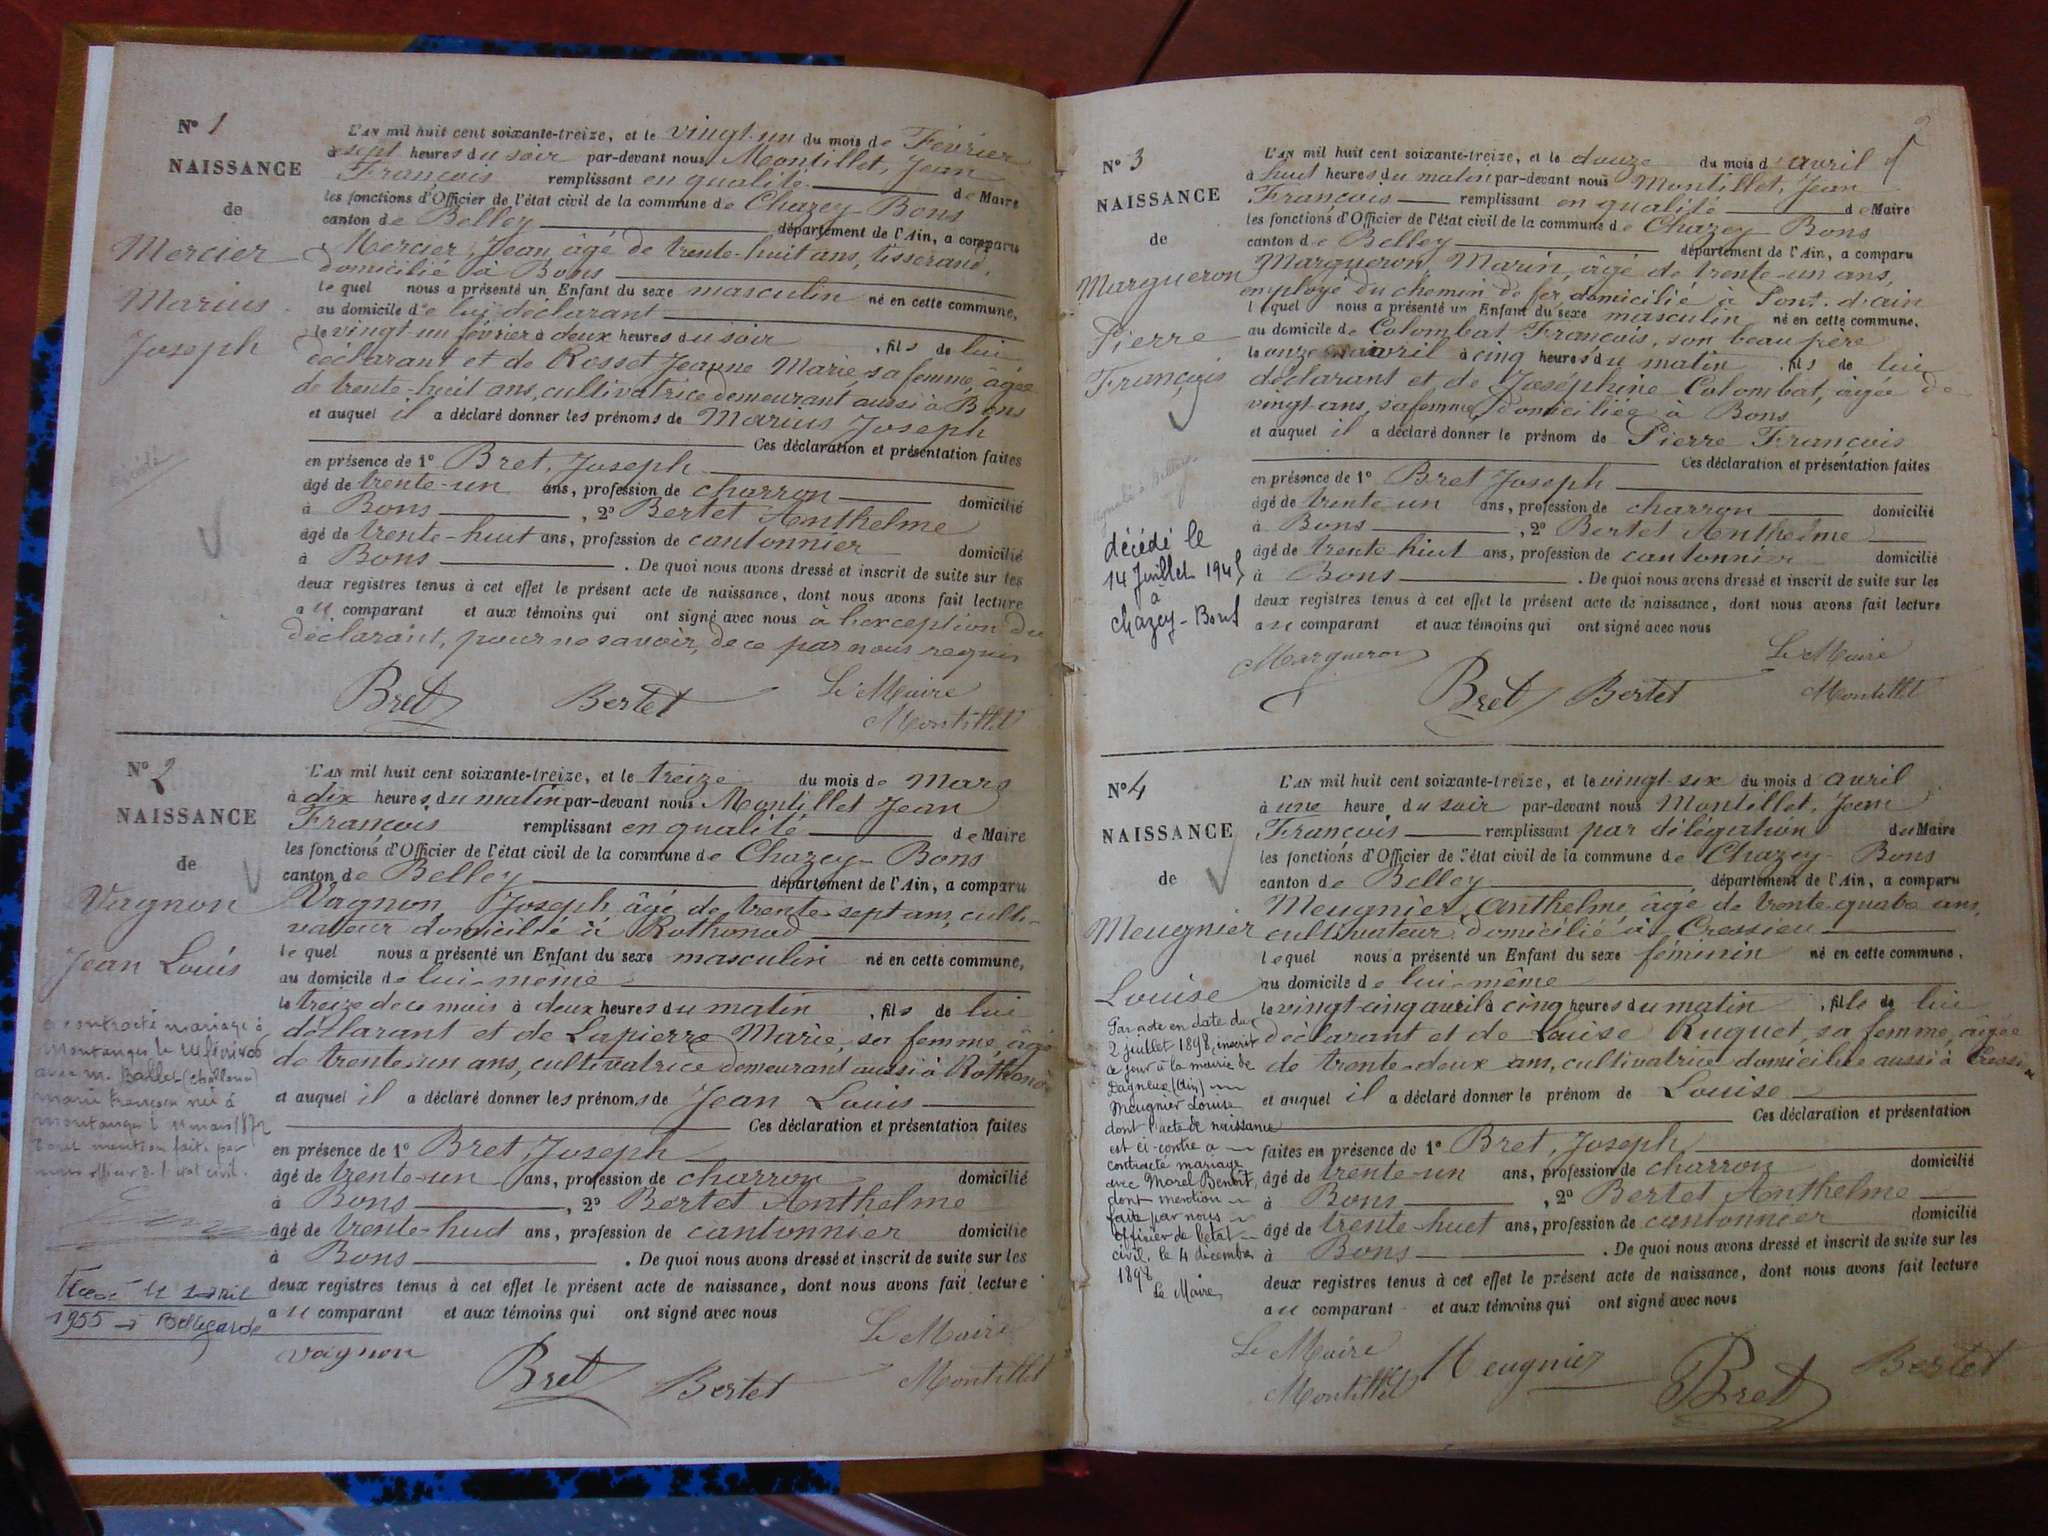 N° 1
NAISSANCE
de
Mercier
Marius
Joseph
L'AN mil huit cent soixante-treize, et le vingt-un du mois de Février
à sept heures du soir par-devant nous Montillet, Jean
François remplissant en qualité de Maire
les fonctions d'Officier de l'état civil de la commune de Chazey-Bons
canton de Belley département de l'Ain, a comparu
Mercier, Jean, âgé de trente-huit ans, tisserand,
domicilié à Bons
lequel nous a présenté un Enfant du sexe masculin né en cette commune,
au domicile de lui déclarant
le vingt un février à deux heures du soir, fils de lui
déclarant et de Rosset Jeanne Marie, sa femme, âgée
de trente-huit ans, cultivatrice demeurant aussi à Bons
et auquel il a déclaré donner les prénoms de Marius Joseph
Ces déclaration et présentation faites
en présence de 1° Bret, Joseph
âgé de trente-un ans, profession de charron domicilié
à Bons, 2° Bertet Anthelme
âgé de trente-huit ans, profession de cantonnier domicilié
à Bons. De quoi nous avons dressé et inscrit de suite sur les
deux registres tenus à cet effet le présent acte de naissance, dont nous avons fait lecture
au comparant et aux témoins qui ont signé avec nous à l'exception du
déclarant, pour ne savoir, de ce par nous requis
Bret Bertet Le Maire
Montillet
N° 2
NAISSANCE
de
Vagnon
Jean Louis
a contracté mariage à
Montanges le
avec M. Ballet
Marie Françoise née à
Montanges le 11 mars 1872
Dont mention faite par
nous officier de l'état civil.
1955 à Bellegarde
L'AN mil huit cent soixante-treize, et le treize du mois de Mars
à dix heures du matin par-devant nous Montillet Jean
François remplissant en qualité de Maire
les fonctions d'Officier de l'état civil de la commune de Chazey-Bons
canton de Belley département de l'Ain, a comparu
Vagnon Joseph âgé de trente-sept ans, culti-
vateur domicilié à Rothonod
lequel nous a présenté un Enfant du sexe masculin né en cette commune,
au domicile de lui-même
le treize de ce mois à deux heures du matin, fils de lui
déclarant et de Lapierre Marie, sa femme, âgée
de trente-un ans, cultivatrice demeurant aussi à Rothonod
et auquel il a déclaré donner les prénoms de Jean Louis
Ces déclaration et présentation faites
en présence de 1° Bret, Joseph
âgé de trente-un ans, profession de charron domicilié
à Bons, 2° Bertet Anthelme
âgé de trente-huit ans, profession de cantonnier domicilié
à Bons. De quoi nous avons dressé et inscrit de suite sur les
deux registres tenus à cet effet le présent acte de naissance, dont nous avons fait lecture
au comparant et aux témoins qui ont signé avec nous
Vagnon Bret Bertet Le Maire
Montillet
N° 3
NAISSANCE
de
Margueron
Pierre
François
décédé le
14 Juillet 1945
à
Chazey-Bons
L'AN mil huit cent soixante-treize, et le douze du mois d'avril
à huit heures du matin par-devant nous Montillet, Jean
François remplissant en qualité de Maire
les fonctions d'Officier de l'état civil de la commune de Chazey Bons
canton de Belley département de l'Ain, a comparu
Margueron, Marin, âgé de trente-un ans,
employé du chemin de fer, domicilié à Pont-d'ain
lequel nous a présenté un Enfant du sexe masculin né en cette commune,
au domicile de Colombat François, son beau père
le onze avril à cinq heures du matin, fils de lui
déclarant et de Joséphine Colombat, âgée de
vingt ans, sa femme, domiciliée à Bons
et auquel il a déclaré donner le prénom de Pierre François
Ces déclaration et présentation faites
en présence de 1° Bret Joseph
âgé de trente un ans, profession de charron domicilié
à Bons, 2° Bertet Anthelme
âgé de trente huit ans, profession de cantonnier domicilié
à Bons. De quoi nous avons dressé et inscrit de suite sur les
deux registres tenus à cet effet le présent acte de naissance, dont nous avons fait lecture
au comparant et aux témoins qui ont signé avec nous
Margueron Bret Bertet Le Maire
Montillet
N° 4
NAISSANCE
de
Meugnier
Louise
Par acte en date du
2 juillet 1898, inscrit
ce jour à la mairie de
Dagneux (Ain)
Meugnier Louise
dont l'acte de naissance
est ci-contre a
contracté mariage
avec Morel Benoit,
dont mention
faite par nous
officier de l'état
civil, le 4 décembre
1898
Le Maire,
L'AN mil huit cent soixante-treize, et le vingt-six du mois d'avril
à une heure du soir par-devant nous Montillet, Jean
François remplissant par délégation de Maire
les fonctions d'Officier de l'état civil de la commune de Chazey-Bons
canton de Belley département de l'Ain, a comparu
Meugnier, Anthelme, âgé de trente-quatre ans,
cultivateur domicilié à Cressieu
lequel nous a présenté un Enfant du sexe féminin né en cette commune,
au domicile de lui-même
le vingt-cinq avril à cinq heures du matin, fille de lui
déclarant et de Louise Ruguet, sa femme, âgée
de trente-deux ans, cultivatrice domiciliée aussi à Cressieu
et auquel il a déclaré donner le prénom de Louise
Ces déclaration et présentation
faites en présence de 1° Bret, Joseph
âgé de trente-un ans, profession de charron domicilié
à Bons, 2° Bertet Anthelme
âgé de trente-huit ans, profession de cantonnier domicilié
à Bons. De quoi nous avons dressé et inscrit de suite sur les
deux registres tenus à cet effet le présent acte de naissance, dont nous avons fait lecture
au comparant et aux témoins qui ont signé avec nous
Le Maire
Montillet Meugnier Bret Bertet